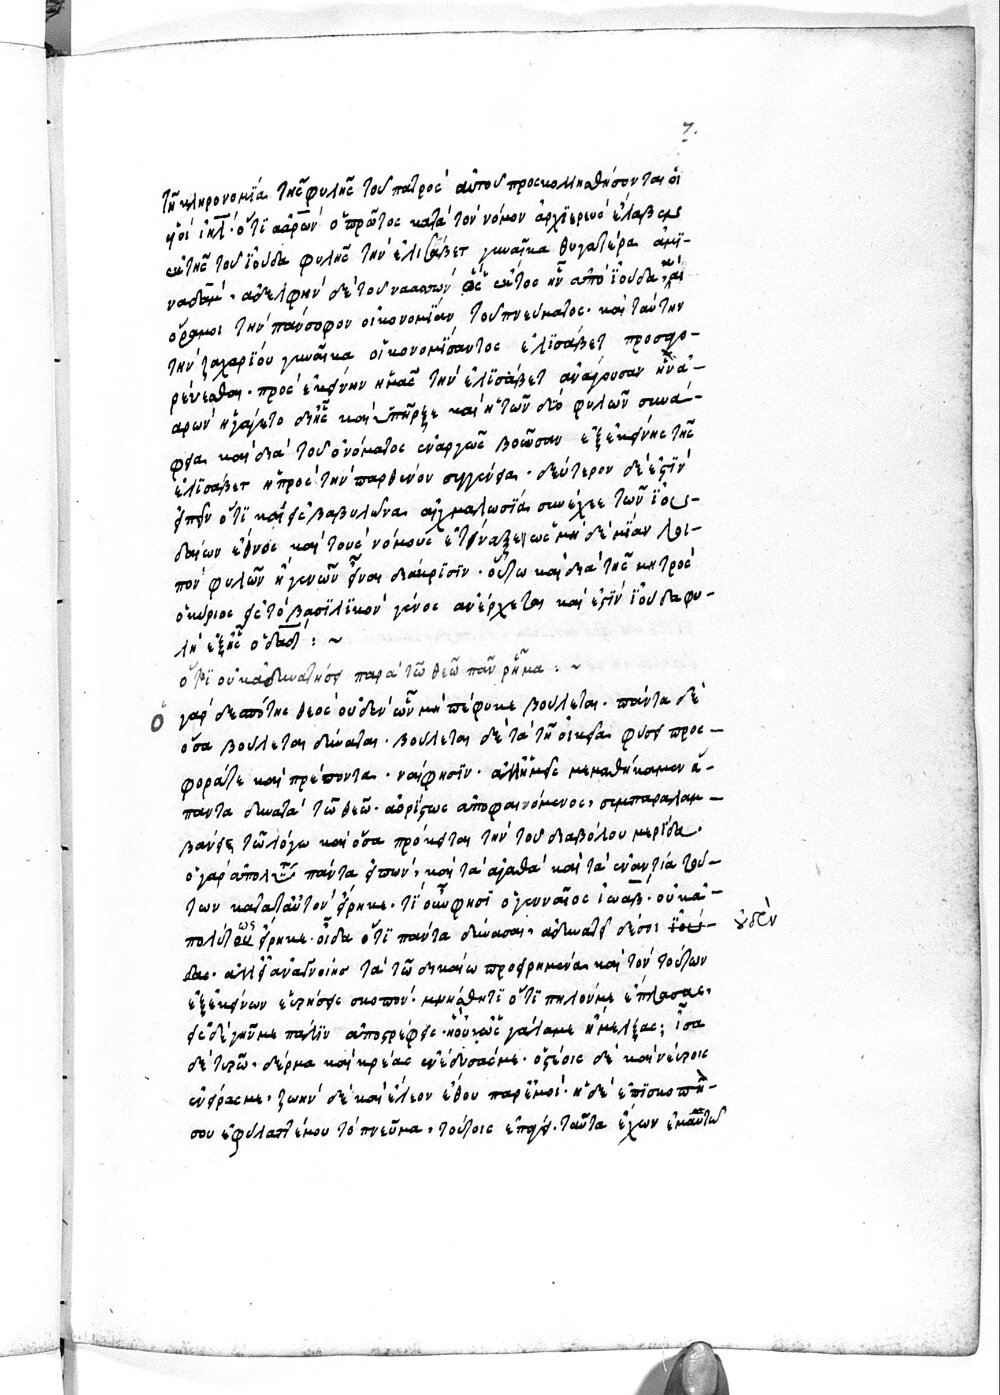 7.
τῇ κληρονομία τῆς φυλῆς τοῦ πατρὸς αὐτοῦ προσκολληθήσονται οἱ
υἱοὶ ἰηλ. ὅτι ἀαρὼν ὁ πρῶτος κατὰ τὸν νόμον ἀρχιερεὺς ἔλαβεν
ἐκ τῆς τοῦ ἰούδα φυλῆς τὴν ἐλισάβετ γυναῖκα θυγατέρα ἀμι-
ναδάμ, ἀδελφὴν δὲ τοῦ ναασών ὃς οὗτος ἦν ἀπὸ ἰούδα, καὶ
ὅρα μοι τὴν πάνσοφον οἰκονομίαν τοῦ πνεύματος. καὶ ταύτην
τὴν ζαχαρίου γυναῖκα οἰκονομίσαντος ἐλισάβετ προσαγο-
ρεύεσθαι. πρὸς ἐκείνην ἡμᾶς τὴν ἐλισάβετ ἀνάγουσαν ἣν ἀ-
αρὼν ἠγάγετο δι' ἧς καὶ ὑπῆρξε καὶ ἡ τῶν δύο φυλῶν συνά-
φεια καὶ διὰ τοῦ ὀνόματος ἐναργῶς βοῶσαν ἐξ ἐκείνης τῆς
ἐλισάβετ ἡ πρὸς τὴν παρθένον συγγένεια. δεύτερον δὲ ἐστὶν
εἰπεῖν ὅτι καὶ εἰς βαβυλῶνα αἰχμαλωσία συνέχεε τῶν ἰου-
δαίων ἔθνος καὶ τοὺς νόμους ἐτίναξεν ὡς μὴ δὲ μίαν λοι-
πὸν φυλῶν ἢ γενῶν εἶναι διάκρισιν. οὕτω καὶ διὰ τῆς μητρὸς
ὁ κύριος εἰς τὸ βασιλικὸν γένος ἀνέρχεται καὶ ἐστὶν ἰούδα φυ-
λὴ ἐξ ἧς ὁ δαδ : ~
ὅτι οὐκ ἀδυνατήσει παρὰ τῶ θεῶ πᾶν ῥῆμα : ~
ὁ γὰρ δεσπότης θεὸς οὐδὲν ὧν μὴ πέφυκε βούλεται. πάντα δὲ
ὅσα βούλεται δύναται. βούλεται δὲ τὰ τῇ οἰκεία φύσει προσ-
φορά τε καὶ πρέποντα. ναί φησιν. ἀλλ' ἡμεῖς μεμαθήκαμεν ἅ-
παντα δυνατὰ τῶ θεῶ. ἀορίστως ἀποφαινόμενος, συμπαραλαμ-
βάνει τῶ λόγω καὶ ὅσα πρόκειται τὴν τοῦ διαβόλου μερίδα.
ὁ γὰρ ἀπολύτως πάντα εἰπών, καὶ τὰ ἀγαθὰ καὶ τὰ ἐναντία τού-
των κατὰ ταὐτὸν εἴρηκε. τί οὖν φησὶ ὁ γενναῖος ἰώβ. οὐκ ἀ-
πολύτως εἴρηκε. οἶδα ὅτι πάντα δύνασαι, ἀδυνατεῖ δέ σοι οὐδὲν
ἀλλ' ἐὰν ἀναγνοίης τὰ τῶ δικαίω προειρημένα καὶ τὸν τούτων
ἐξ ἐκείνων εὑρήσεις σκοπόν. μνήσθητι ὅτι πηλόν με ἔπλασας,
εἰς δὲ γῆν με πάλιν ἀποστρέφεις. ἢ οὐχ ὡς γάλα με ἤμελξας; ἶσα
δὲ τυρῶ. δέρμα καὶ κρέας ἐνέδυσάς με. ὀστέοις δὲ καὶ νεύροις
ἐνείρας με, ζωὴν δὲ καὶ ἔλεον ἔθου παρ' ἐμοί. ἡ δὲ ἐπισκοπή
σου ἐφύλαξέ μου τὸ πνεῦμα, τούτοις ἐπάγει. ταῦτα ἔχων ἐμαυτῶ